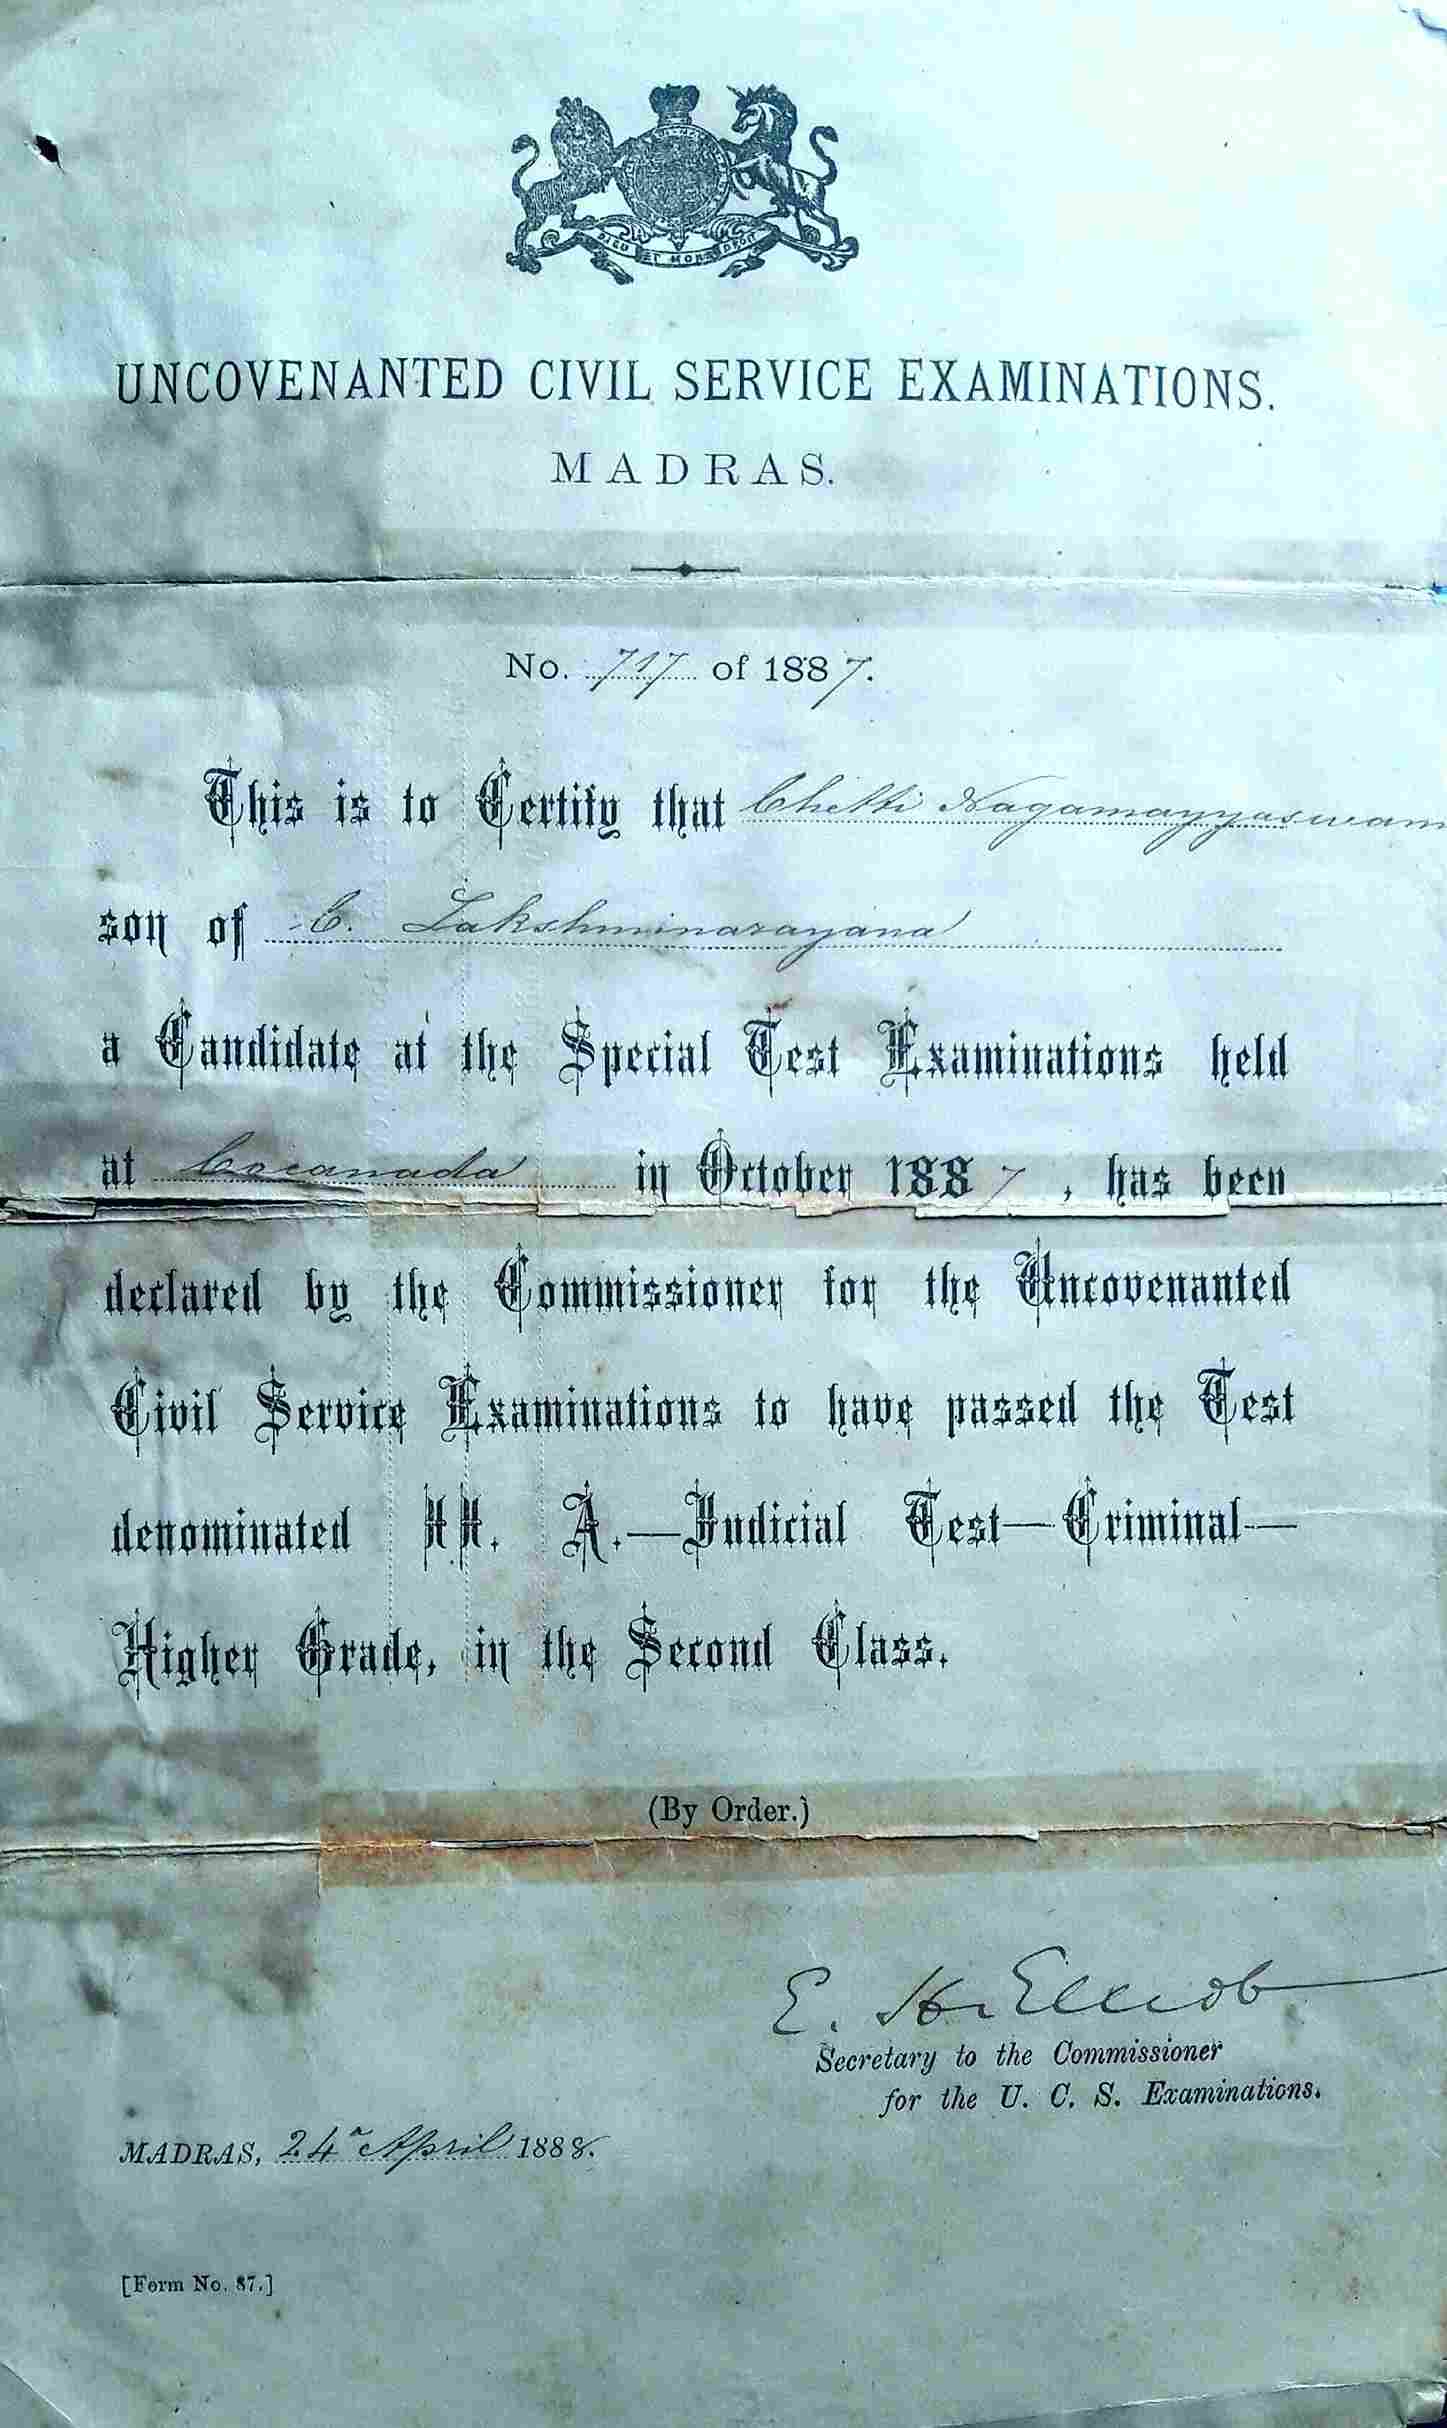 DIEU ET MON DROIT
UNCOVENANTED CIVIL SERVICE EXAMINATIONS.
MADRAS.
No. 717 of 1887.
This is to Certify that Chetti Nagamayyaswam
son of C. Lakshminarayana
a Candidate at the Special Test Examinations held
at Cocanada in October 1887, has been
declared by the Commissioner for the Uncovenanted
Civil Service Examinations to have passed the Test
denominated HH. A.—Judicial Test—Criminal—
Higher Grade, in the Second Class.
(By Order.)
E. H. Elliot
Secretary to the Commissioner
for the U. C. S. Examinations.
MADRAS, 24th April 1888.
[Form No. 87.]